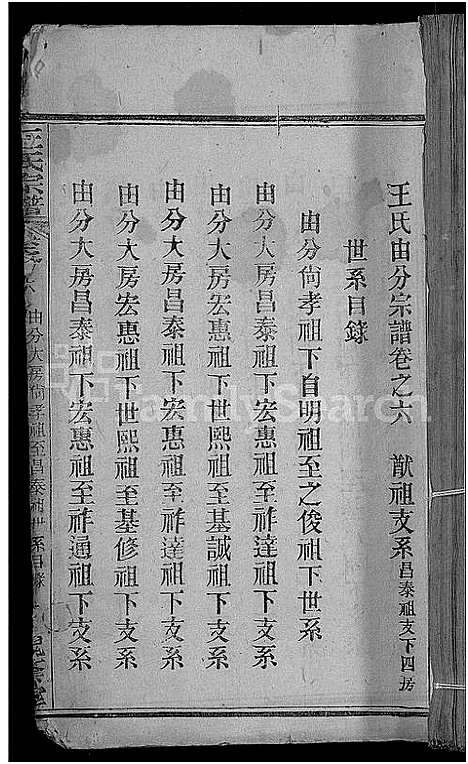 王氏由分宗譜卷之六　猷祖支系昌泰祖支下四房
世系目錄
由分尙孝祖下自明祖至之俊祖下世系
由分大房昌泰祖下宏惠祖至祚達祖下支系
由分大房宏惠祖下世熙祖至基誠祖下支系
由分大房昌泰祖下宏惠祖至祚達祖下支系
由分大房宏惠祖下世熙祖至基修祖下支系
由分大房昌泰祖下宏惠祖至祚通祖下支系
王氏宗譜
由分大房尙孝祖至昌泰祖世系目錄
FamilySearch